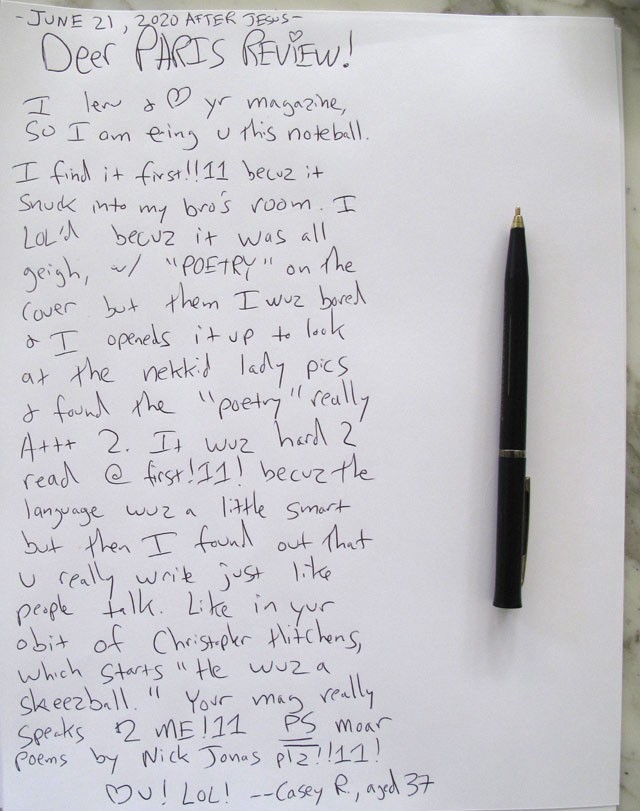 -JUNE 21, 2020 AFTER JESUS-
Deer PARIS REVIEW!
I lerv & ♡ yr magazine,
So I am eing u this noteball.
I find it first!!11 becuz it
snuck into my bro's room. I
LOL'd becuz it was all
geigh, w/ "POETRY" on the
cover but them I wuz bored
& I openeds it up to look
at the nekkid lady pics
& found the "poetry" really
A+++ 2. It wuz hard 2
read @ first!11! becuz the
language wuz a little smart
but then I found out that
u really write just like
people talk. Like in yur
obit of Christopher Hitchens,
which starts "He wuz a
skeezball." Your mag really
speaks 2 ME!11 PS moar
poems by Nick Jonas plz!!11!
♡ u! LOL! --Casey R., aged 37